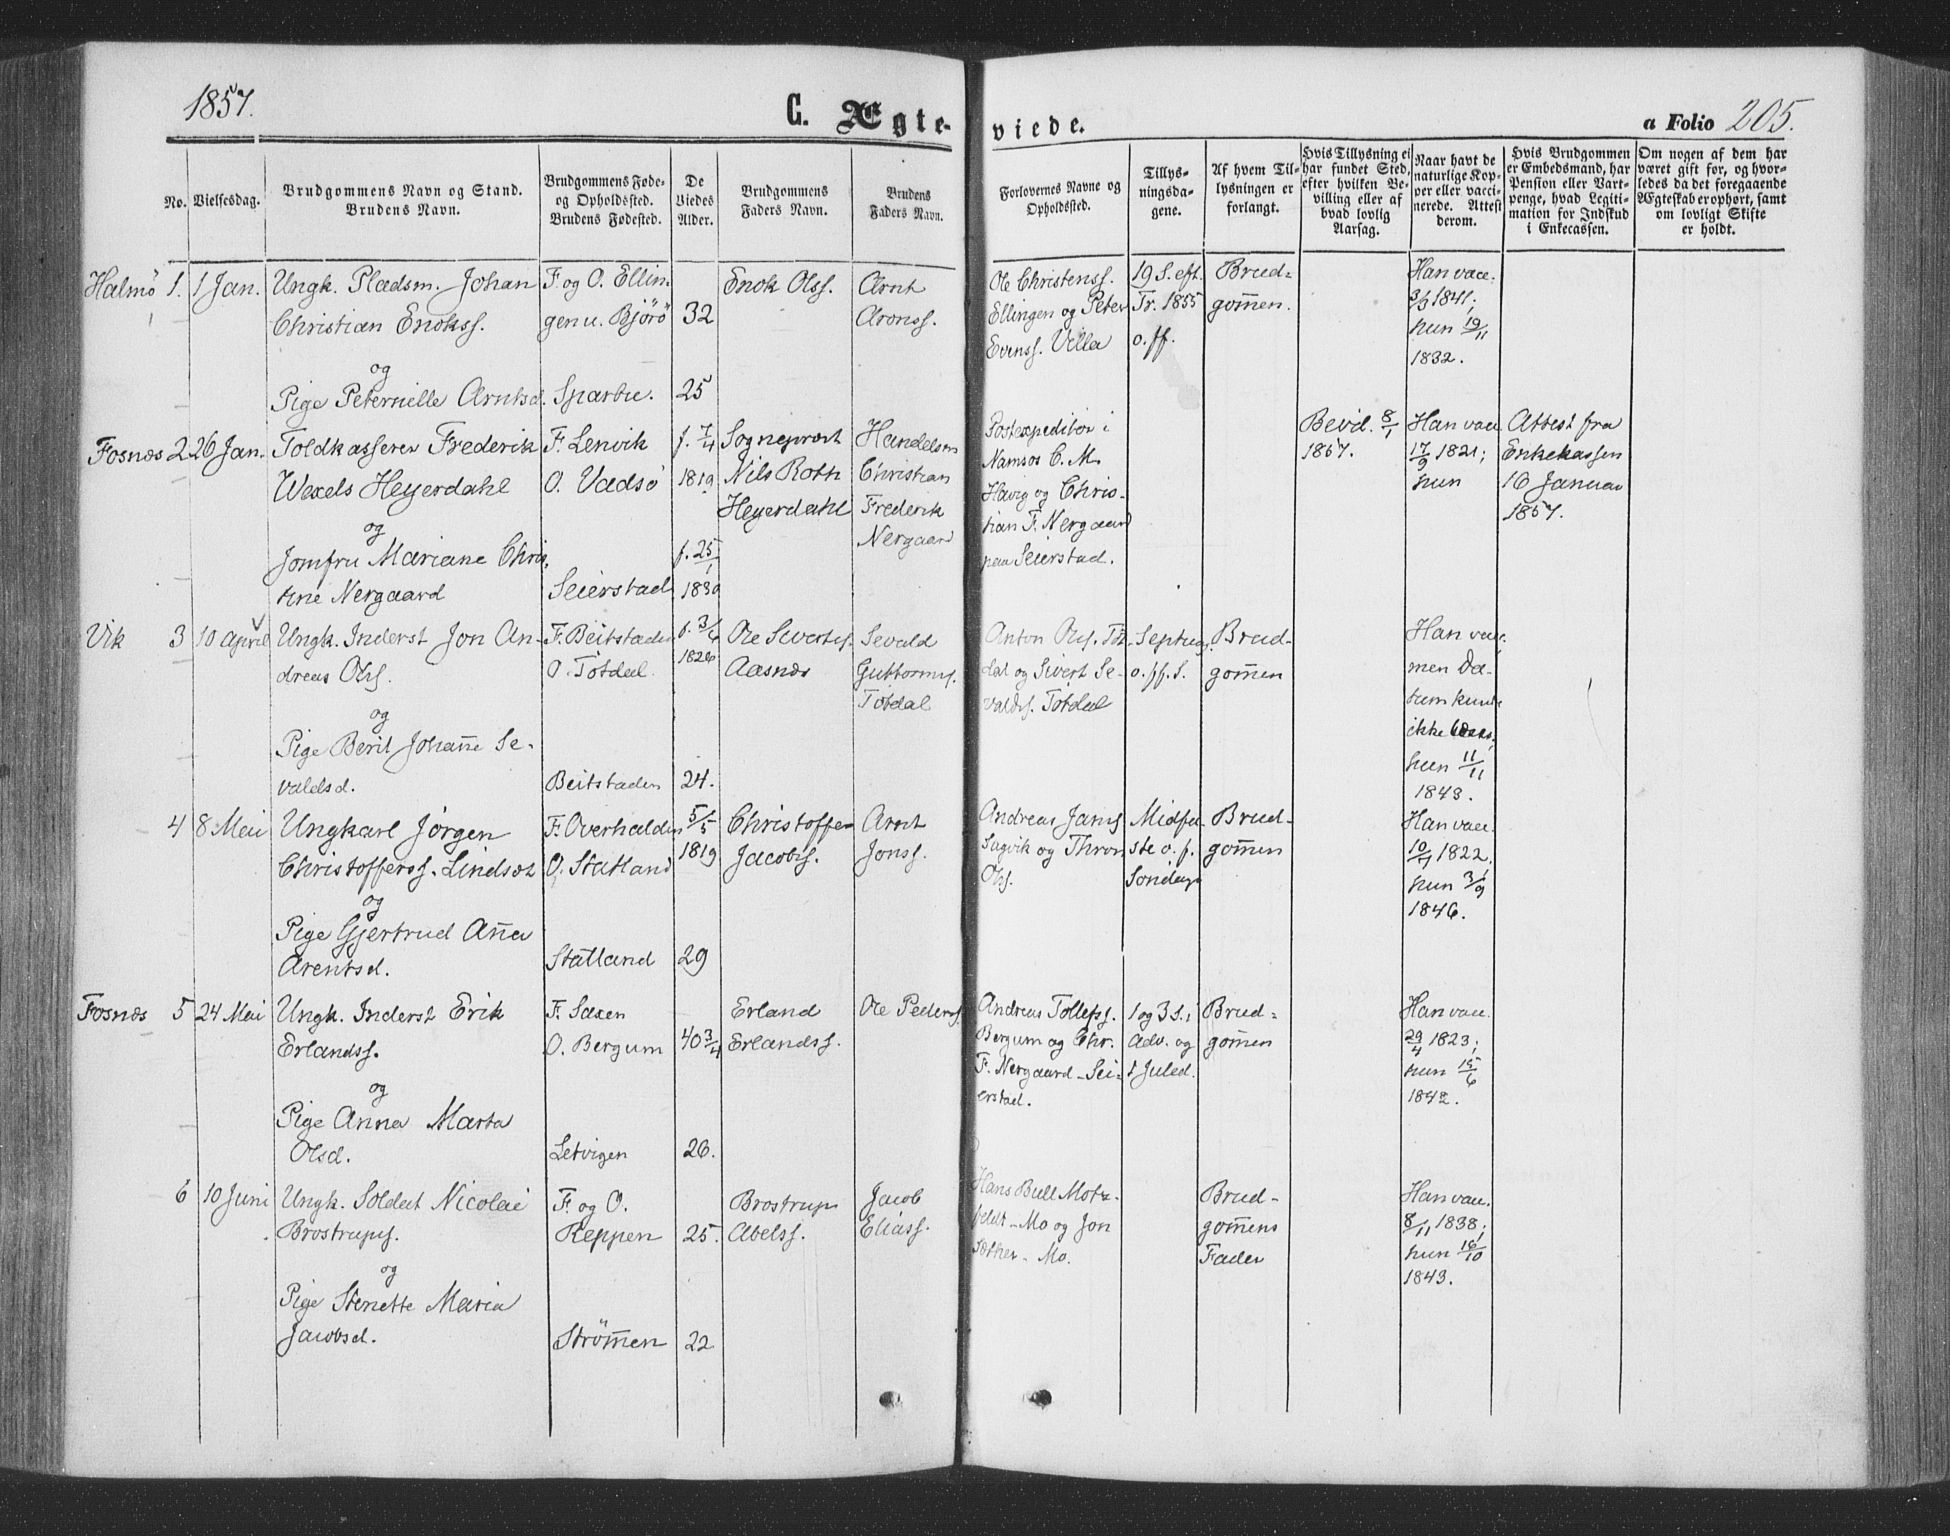 1857.
C. Ægte-
viede.
a Folio 205.
No.
Vielsesdag.
Brudgommens Navn og Stand.
Brudens Navn.
Brudgommens Føde-
og Opholdssted.
Brudens Fødested.
De
Viedes
Alder.
Brudgommens
Faders Navn.
Brudens
Faders Navn.
Forlovernes Navne og
Opholdssted.
Tillys-
ningsda-
gene.
Af hvem Til-
lysningen er
forlangt.
Hvis Tillysning ei
har fundet Sted,
efter hvilken Be-
villing eller af
hvad lovlig
Aarsag.
Naar havt de
naturlige Kop-
per eller vacci-
nerede. Attest
derom.
Hvis Brudgommen
er Embedsmand, har
Pension eller Vart-
penge, hvad Legiti-
mation for Indskud
i Enkecassen.
Om nogen af dem har
været gift før, og hvor-
ledes da det foregaaende
Ægteskab er ophørt, samt
om lovligt Skifte
er holdt.
Halmö
1.
1 Jan.
Ungk. Pladsm. Johan
Christian Enokss.
og
Pige Peternelle Arntsd.
F. og O. Ellin
gen u. Björö
Sparbu.
32
25
Enok Olss.
Arnt
Aronss.
Ole Christenss.
Ellingen og Peter
Evenss. Villa
19 S. eft.
Tr. 1855
o. ff.
Brud-
gom̄en.
Han vacc.
3/3 1841;
hun 19/11
1832.
Fosnæs
2
26 Jan.
Toldkasserer Frederik
Wexels Heyerdahl
og
Jomfru Mariane Chris
tine Nergaard
F. Lenvik
O. Vadsö
Seierstad
f. 7/4
1819
f. 25/1
1830
Sogneprest
Nils Roth
Heyerdahl
Handelsm
Christian
Frederik
Nergaard
Postexpeditör i
Namsos C. M.
Havig og Chris-
tian F. Nergaard
paa Seierstad.
Bevid. 8/1
1857.
Han vacc.
17/9 1821;
hun
Attest fra
Enkekassen
16 Januar
1857.
Vik
3
10 April
Ungk. Inderst Jon An-
dreas Olss.
og
Pige Berit Johan̄e Se-
valdsd.
F. Beitstaden
O. Tötdal
Beitstaden
f. 3/6
1826
24.
Ole Sivertss.
Aasnæs
Sevald
Guttormss.
Tötdal
Anton Olss. Töt-
dal og Sivert Se-
valdss. Tötdal
Septuag.
o. ff. S.
Brud-
gom̄en
Han vacc.
men Da-
tum kunde
ikke læses,
hun 11/11
1843.
4
8 Mai
Ungkarl Jörgen
Christofferss. Lindsæt
og
Pige Gjertrud An̄a
Arentsd.
F. Overhalden
O. Statland
Statland
5/5
1819
29
Christoffer
Jacobss.
Arnt
Jonss.
Andreas Janss.
Sagvik og Thron
Olss.
Midfa-
ste o. f.
Söndage
Brud-
gom̄en
Han vacc.
10/11 1822;
hun 3/9
1846.
Fosnæs
5
24 Mai
Ungk. Inderst Erik
Erlandss.
og
Pige Anna Marta
Olsd.
F. Saxen
O. Bergum
Letvigen
40 3/4
26.
Erland
Erlandss.
Ole Pederss.
Andreas Tollefss.
Bergum og Chr.
F. Nergaard - Sei-
erstad.
1 og 3 S. i
Adv. og
1 Juled.
Brud-
gom̄en
Han vacc.
29/4 1823;
hun 15/6
1842.
6
10 Juni
Ungk. Soldat Nicolai
Brostrupss.
og
Pige Stenette Maria
Jacobsd.
F. og O.
Reppen
Ström̄en
25.
22
Brostrup
Abelss.
Jacob
Eliass.
Hans Bull Motz-
feldt - Mo og Jon
Sæther - Mo.
Brud-
gom̄ens
Fader
Han vacc.
8/11 1838;
hun 16/10
1843.